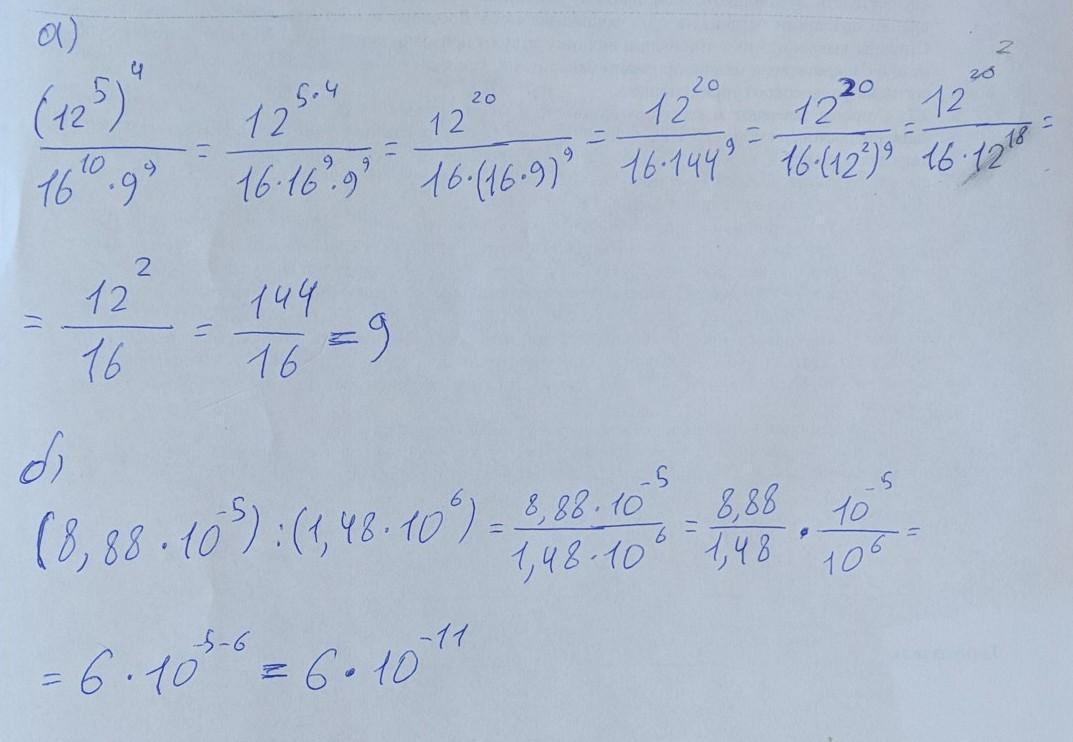 а)
(12^5)^4 / 16^10 · 9^9 = 12^5·4 / 16·16^9·9^9 = 12^20 / 16·(16·9)^9 = 12^20 / 16·144^9 = 12^20 / 16·(12^2)^9 = 12^20 2 / 16·12^18 =
= 12^2 / 16 = 144 / 16 = 9
б)
(8,88 · 10^-5) : (1,48 · 10^6) = 8,88 · 10^-5 / 1,48 · 10^6 = 8,88 / 1,48 · 10^-5 / 10^6 =
= 6 · 10^-5-6 = 6 · 10^-11